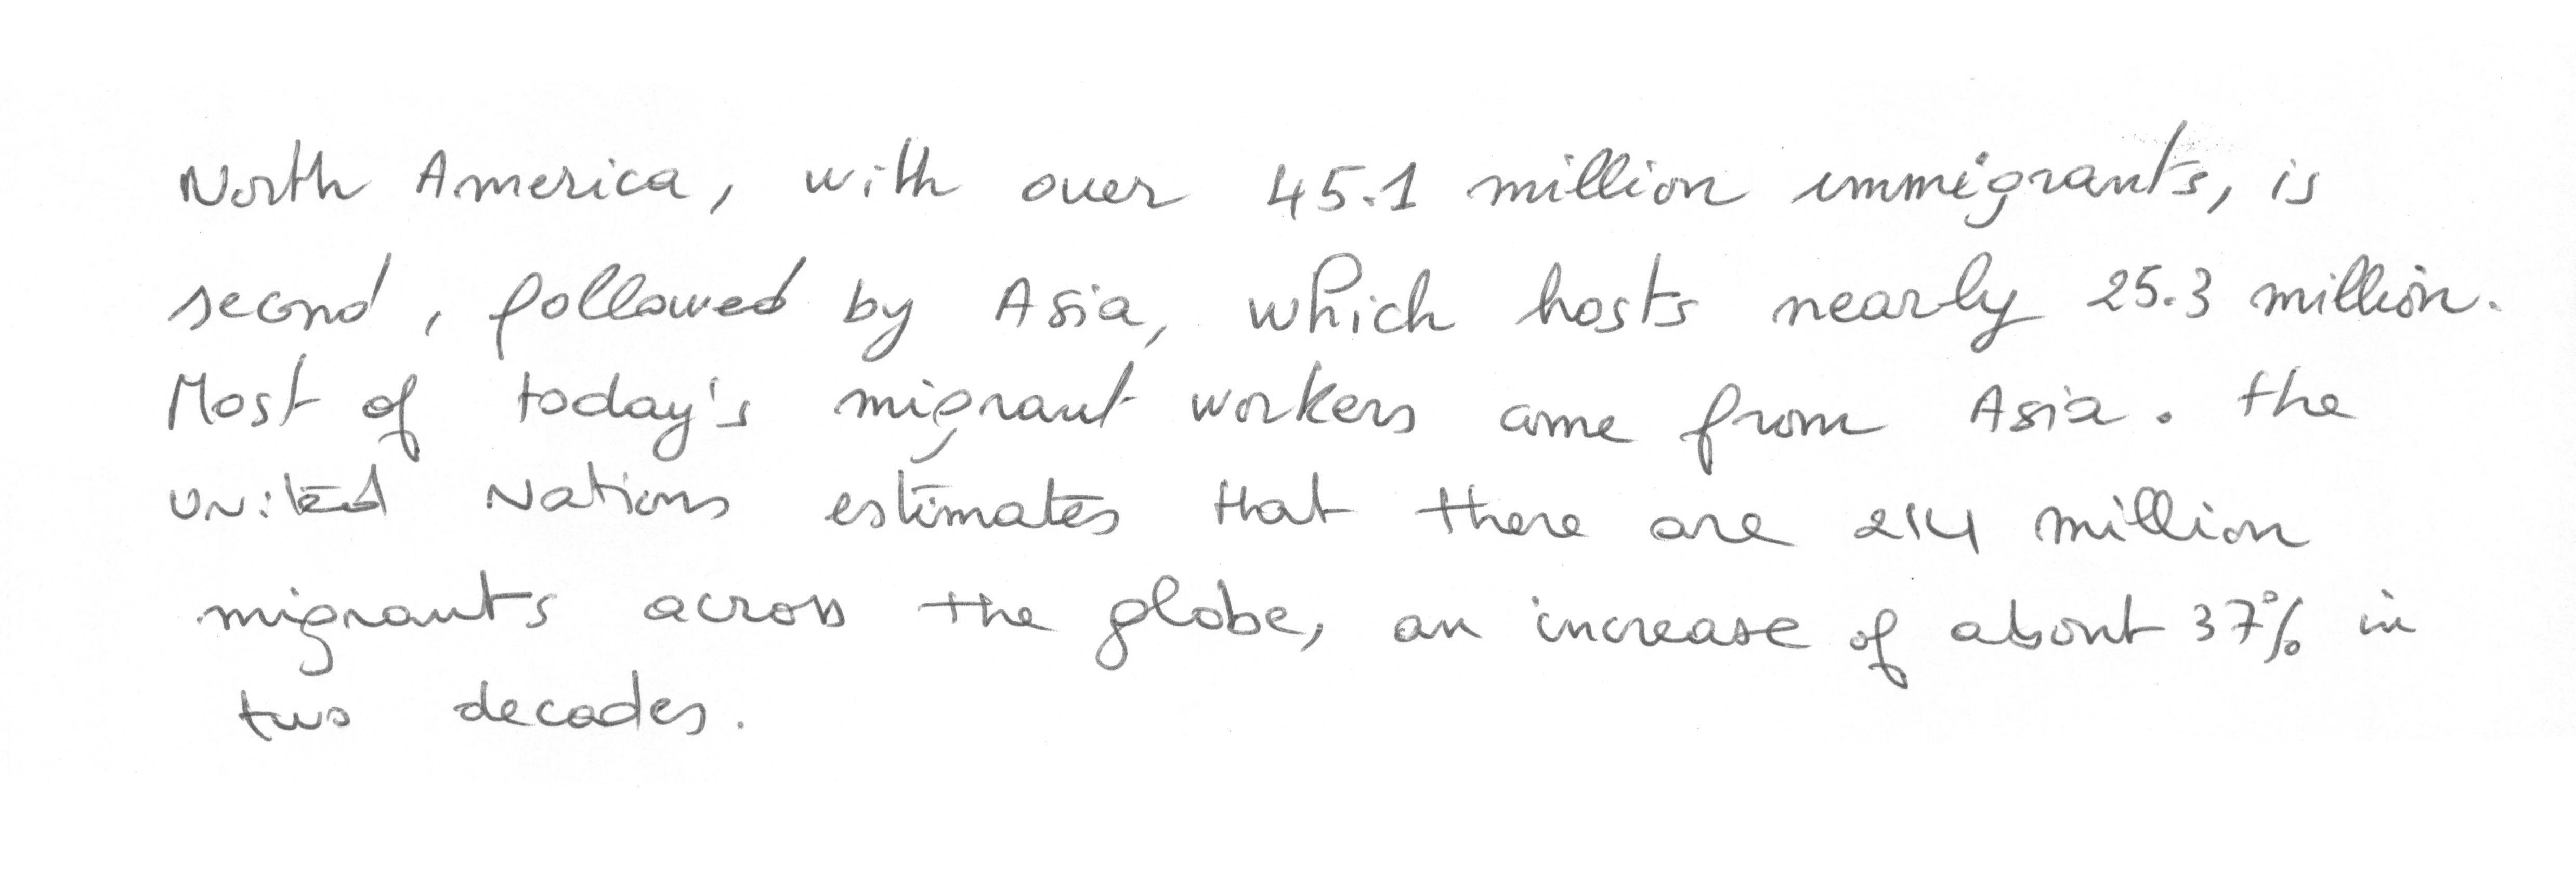 North America, with over 45.1 million immigrants, is
second, followed by Asia, which hosts nearly 25.3 million.
Most of today's migrant workers come from Asia. the
United Nations estimates that there are 214 million
migrants across the globe, an increase of about 37% in
two decades.